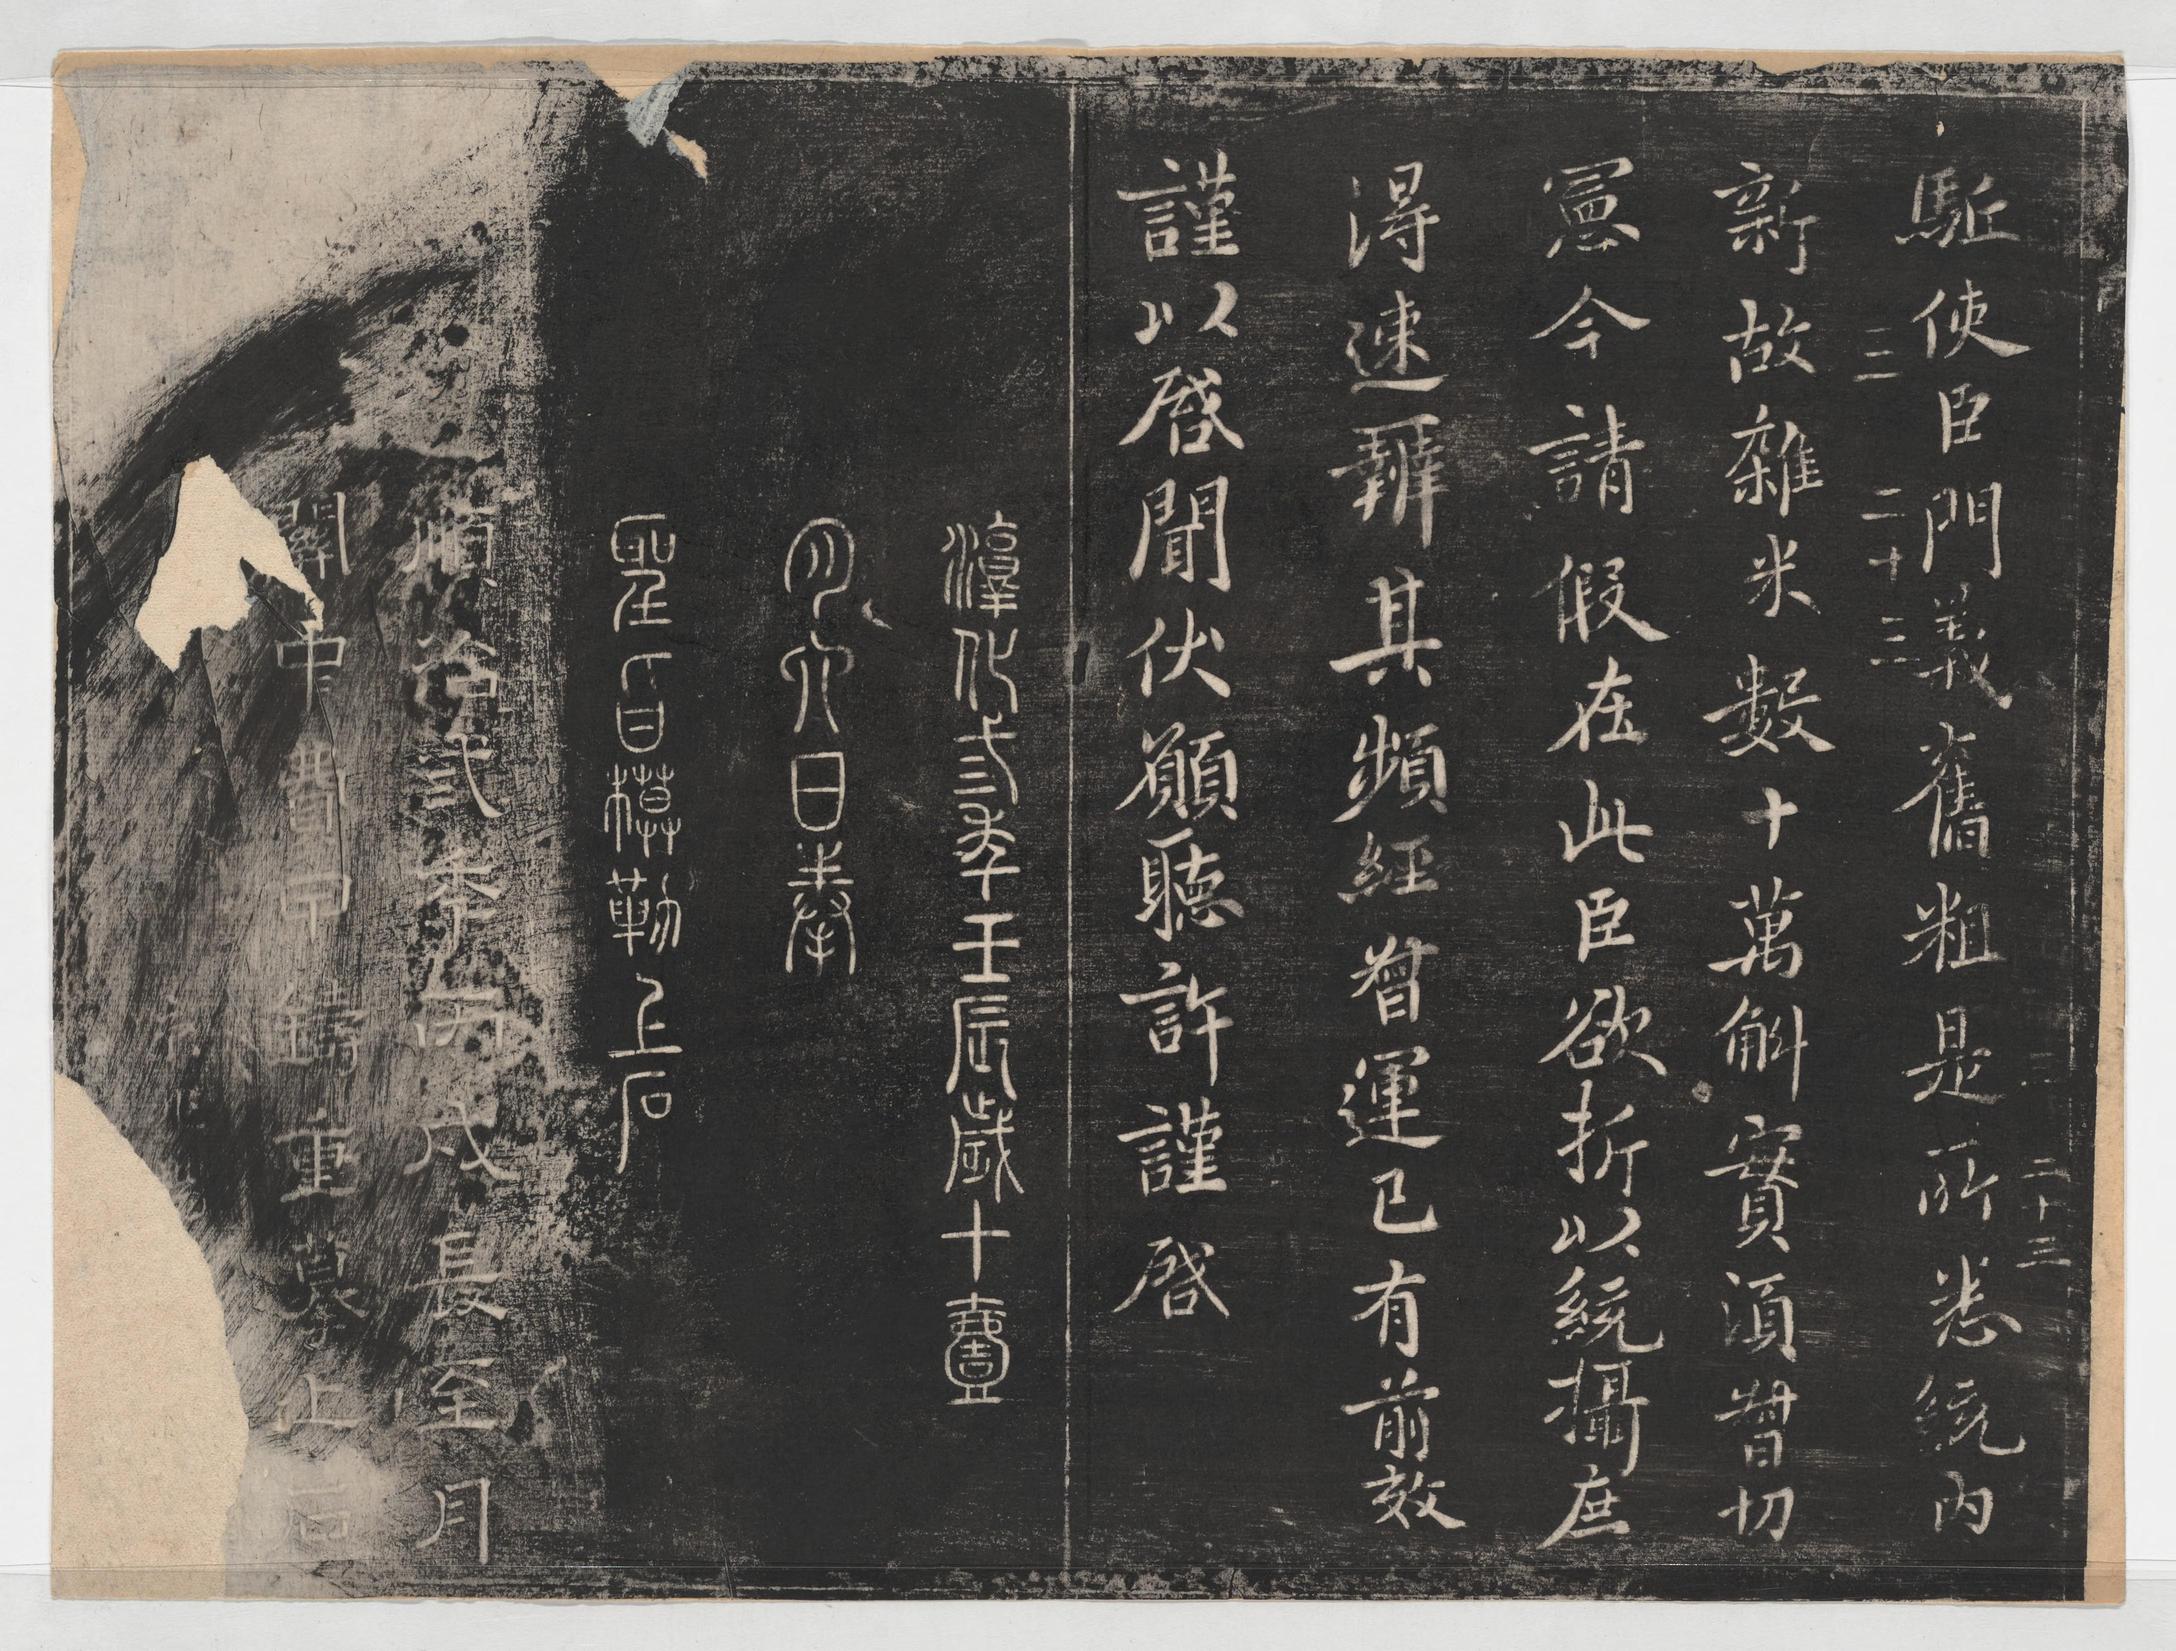 二十三
駈使臣門義舊粗是所悉統內
二十三
新故雜米數十萬斛實湏督切
憲今請假在此臣欲折以統攝庶
得速辦其頻經督運已有前效
謹以啓聞伏願聽許謹啓
淳化弎年壬辰歲十壹
月六日奉
聖旨模勒上石
順治弎季丙戌長至月
關中費甲鑄重摹上石